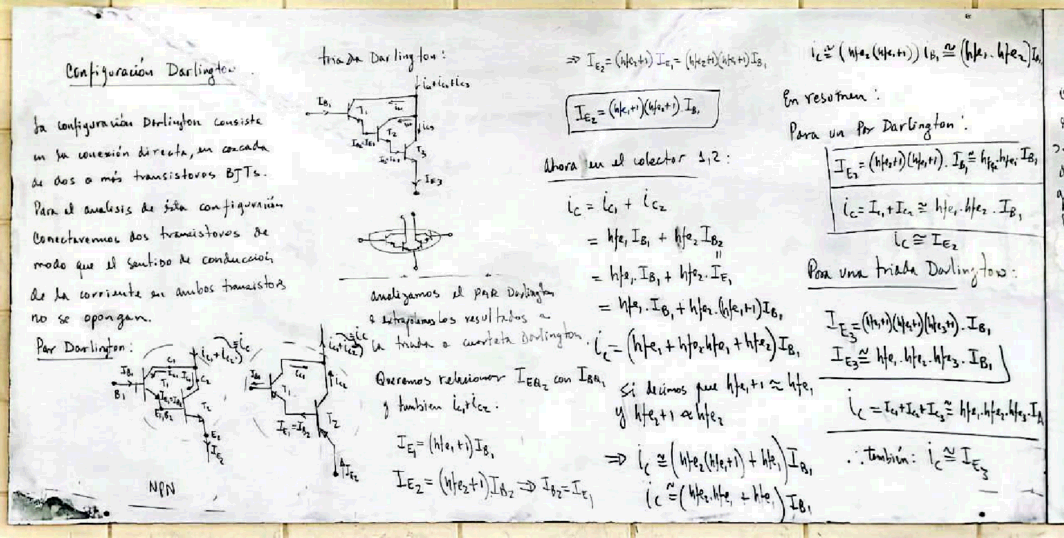 Configuración Darlington.
La configuración Darlington consiste
en la conexión directa, en cascada
de dos o más transistores BJTs.
Para el analisis de ésta configuración
Conectaremos dos transistores de
modo que el sentido de conducción
de la corriente en ambos transistores
no se opongan.
Par Darlington:
NPN
triada Darlington:
analizamos el par Darlington
los resultados a
la triada o cuarteta Darlington.
Queremos relacionar I_EQ2 con I_BQ1
y tambien ic1+ic2.
I_E1 = (hfe1+1) I_B1
I_E2 = (hfe2+1) I_B2 ⇒ I_B2 = I_E1
⇒ I_E2 = (hfe2+1) I_E1 = (hfe2+1)(hfe1+1) I_B1
I_E2 = (hfe1+1)(hfe2+1). I_B1
Ahora en el colector 1,2:
ic = ic1 + ic2
= hfe1 I_B1 + hfe2 I_B2
= hfe1. I_B1 + hfe2. I_E1
= hfe1. I_B1 + hfe2. (hfe1+1) I_B1
ic = (hfe1 + hfe2 hfe1 + hfe2) I_B1
si decimos que hfe1+1 ≈ hfe1
y hfe2+1 ≈ hfe2
⇒ ic ≅ (hfe2(hfe1+1) + hfe1) I_B1
ic ≅ (hfe2.hfe1 + hfe1) I_B1
ic ≅ (hfe1(hfe2+1)) I_B1 ≅ (hfe1.hfe2) I_B1
En resumen:
Para un Par Darlington:
I_E2 = (hfe2+1)(hfe1+1). I_B1 ≅ hfe2.hfe1. I_B1
ic = Ic1 + Ic2 ≅ hfe1.hfe2. I_B1
ic ≅ I_E2
Para una triada Darlington:
I_E3 = (hfe1+1)(hfe2+1)(hfe3+1). I_B1
I_E3 ≅ hfe1.hfe2.hfe3. I_B1
ic = Ic1+Ic2+Ic3 ≅ hfe1.hfe2.hfe3.
∴ también: ic ≅ I_E3